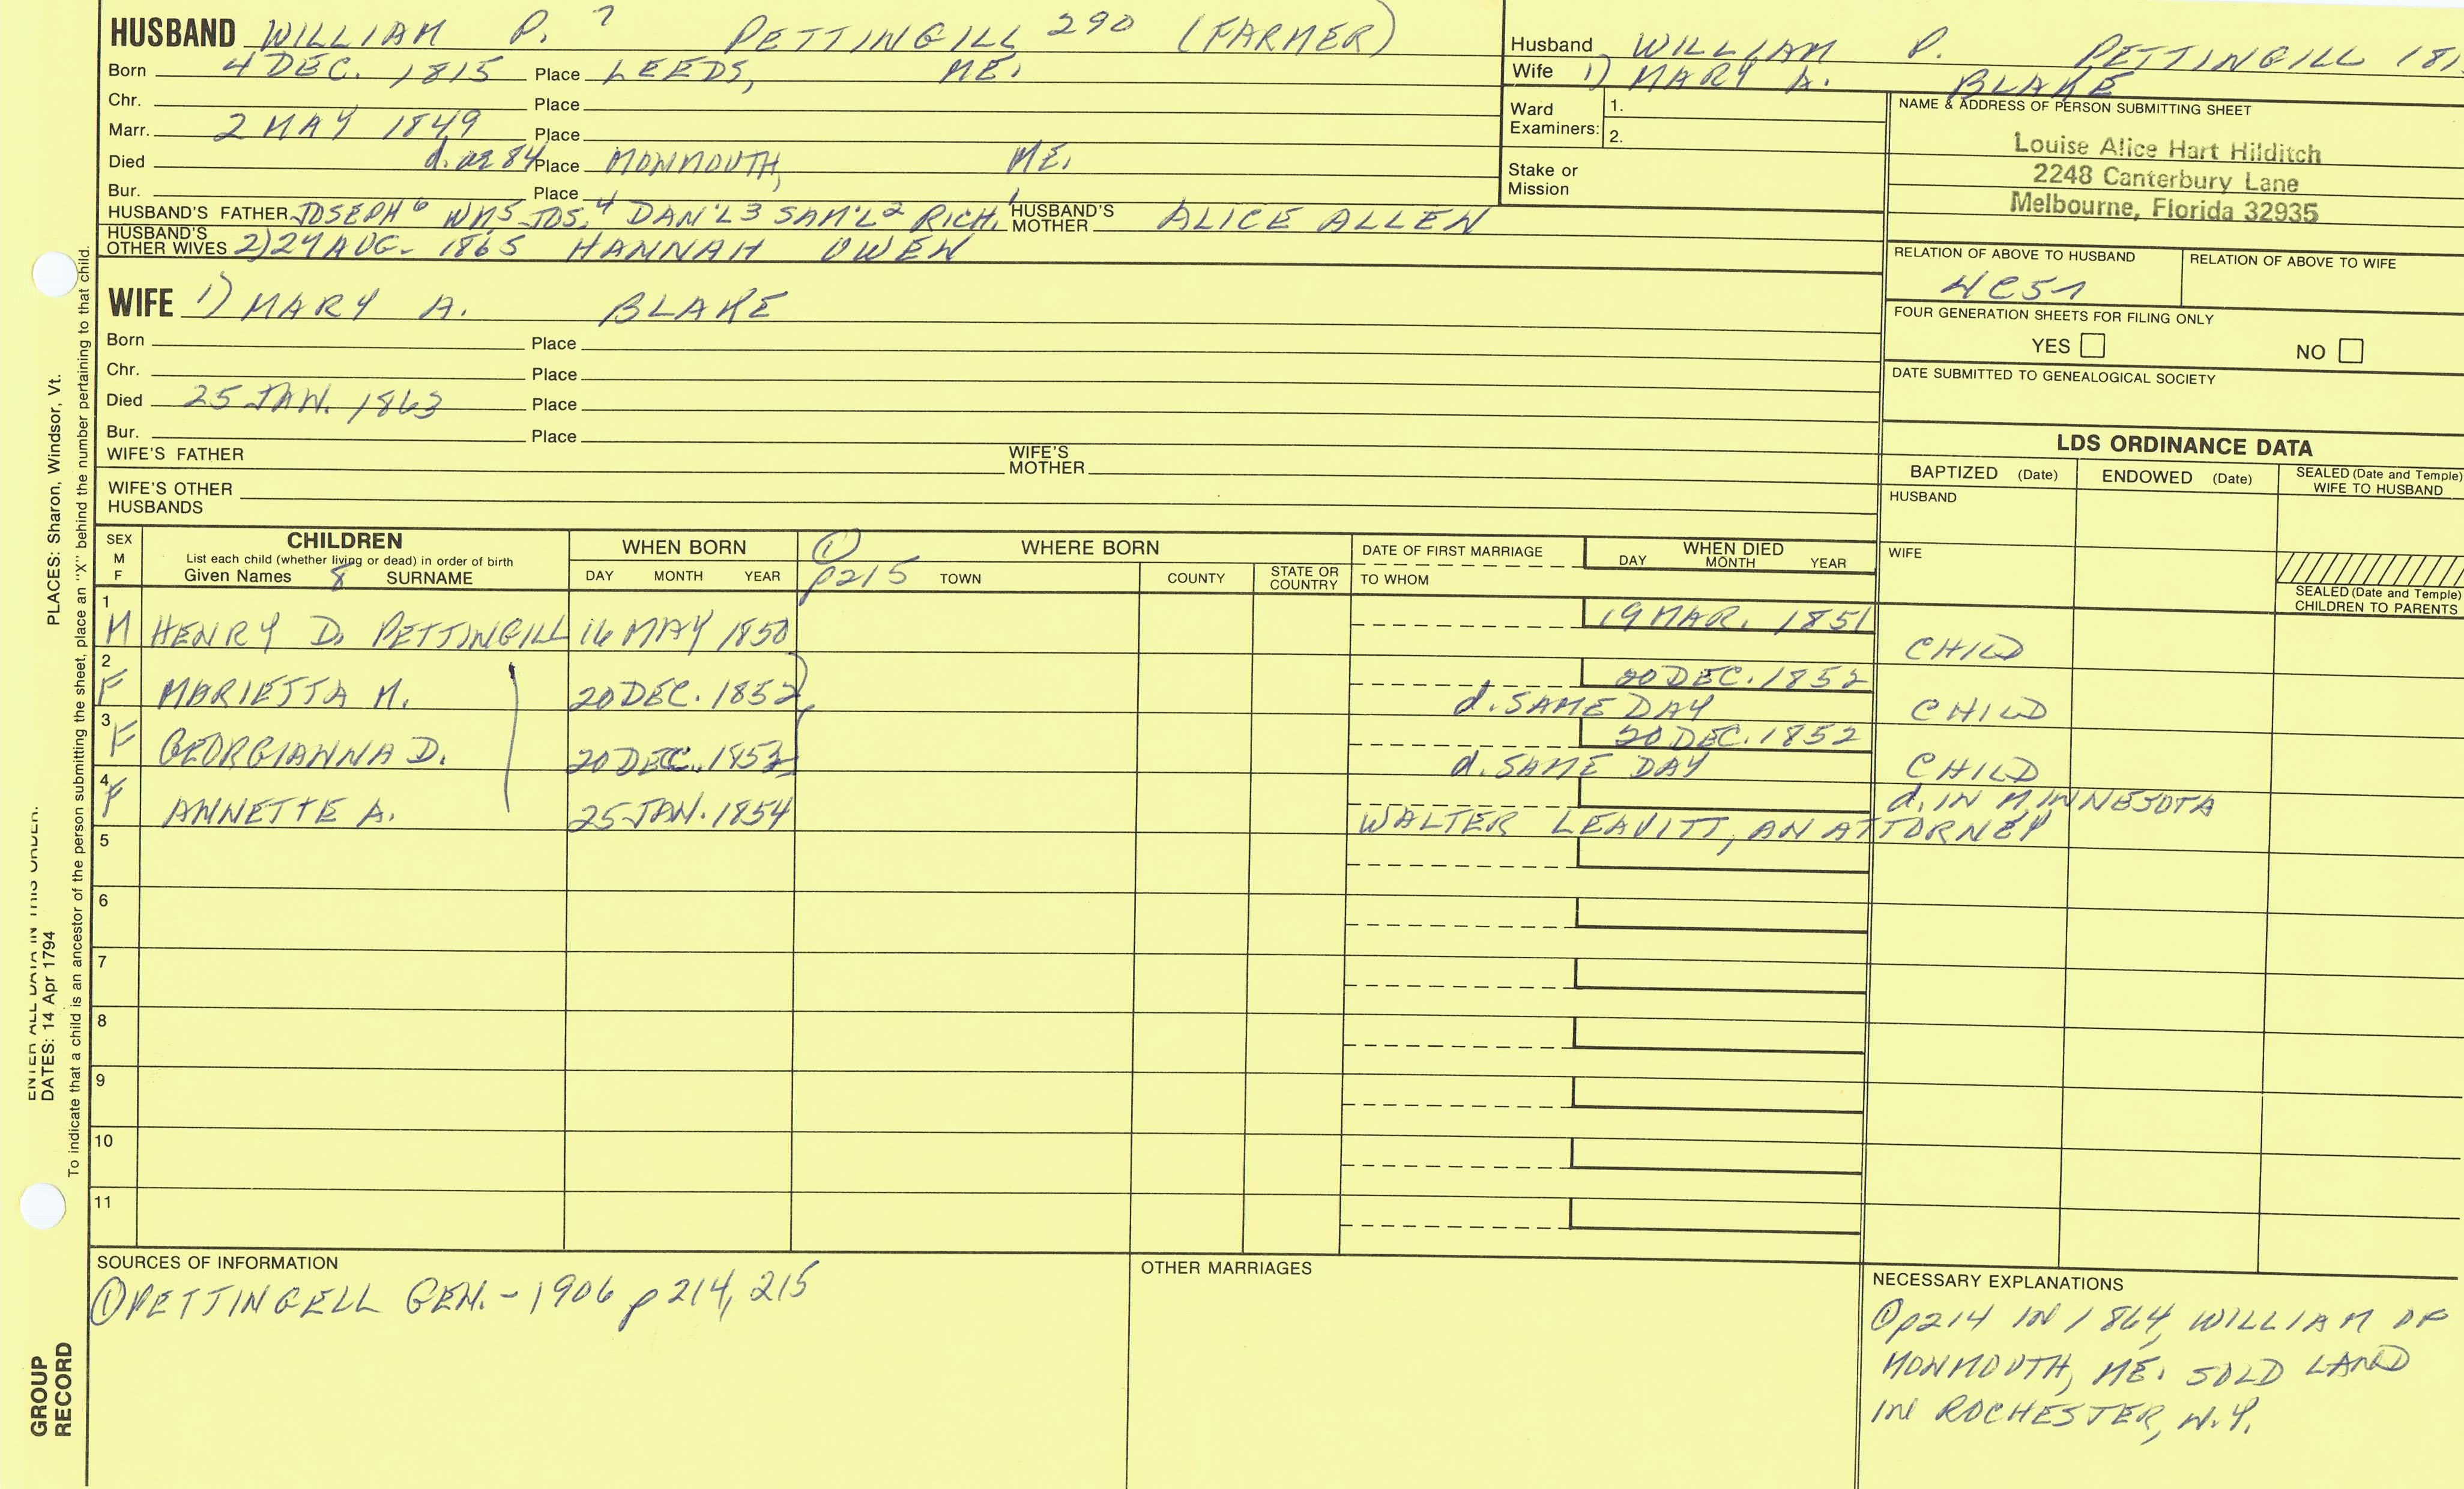 HUSBAND WILLIAM P. 7 PETTINGILL 290 (FARMER)
Born 4 DEC. 1815 Place LEEDS, ME.
Chr. Place
Marr. 2 MAY 1849 Place
Died d. ae 84 Place MONMOUTH, ME.
Bur. Place
HUSBAND'S FATHER JOSEPH 6 WM 5 JOS. 4 DAN'L 3 SAM'L 2 RICH. 1 HUSBAND'S MOTHER ALICE ALLEN
HUSBAND'S OTHER WIVES 2) 29 AUG. 1865 HANNAH OWEN
WIFE 1) MARY A. BLAKE
Born Place
Chr. Place
Died 25 JAN. 1863 Place
Bur. Place
WIFE'S FATHER WIFE'S MOTHER
WIFE'S OTHER HUSBANDS
Husband WILLIAM P. PETTINGILL 181
Wife 1) MARY A. BLAKE
Ward Examiners: 1.
2.
Stake or Mission
NAME & ADDRESS OF PERSON SUBMITTING SHEET
Louise Alice Hart Hilditch
2248 Canterbury Lane
Melbourne, Florida 32935
RELATION OF ABOVE TO HUSBAND RELATION OF ABOVE TO WIFE
FOUR GENERATION SHEETS FOR FILING ONLY
YES NO
DATE SUBMITTED TO GENEALOGICAL SOCIETY
LDS ORDINANCE DATA
BAPTIZED (Date) ENDOWED (Date) SEALED (Date and Temple) WIFE TO HUSBAND
HUSBAND
WIFE
SEALED (Date and Temple) CHILDREN TO PARENTS
SEX M F
CHILDREN
List each child (whether living or dead) in order of birth
Given Names 8 SURNAME
WHEN BORN
DAY MONTH YEAR
① p215
WHERE BORN
TOWN COUNTY STATE OR COUNTRY
DATE OF FIRST MARRIAGE
TO WHOM
WHEN DIED
DAY MONTH YEAR
1 M HENRY D. PETTINGILL 16 MAY 1850 19 MAR. 1851 CHILD
2 F MARIETTA M. 20 DEC. 1852 20 DEC. 1852
d. SAME DAY CHILD
3 F GEORGIANNA D. 20 DEC. 1852 20 DEC. 1852
d. SAME DAY CHILD
4 F ANNETTE A. 25 JAN. 1854 d. IN MINNESOTA
WALTER LEAVITT, AN ATTORNEY
5
6
7
8
9
10
11
SOURCES OF INFORMATION
① PETTINGELL GEN. - 1906 p 214, 215
OTHER MARRIAGES
NECESSARY EXPLANATIONS
① p214 IN 1864, WILLIAM OF
MONMOUTH, ME. SOLD LAND
IN ROCHESTER, N.Y.
PLACES: Sharon, Windsor, Vt.
DATES: 14 Apr 1794
ENTER ALL DATA IN THIS ORDER:
To indicate that a child is an ancestor of the person submitting the sheet, place an "X" behind the number pertaining to that child.
GROUP
RECORD